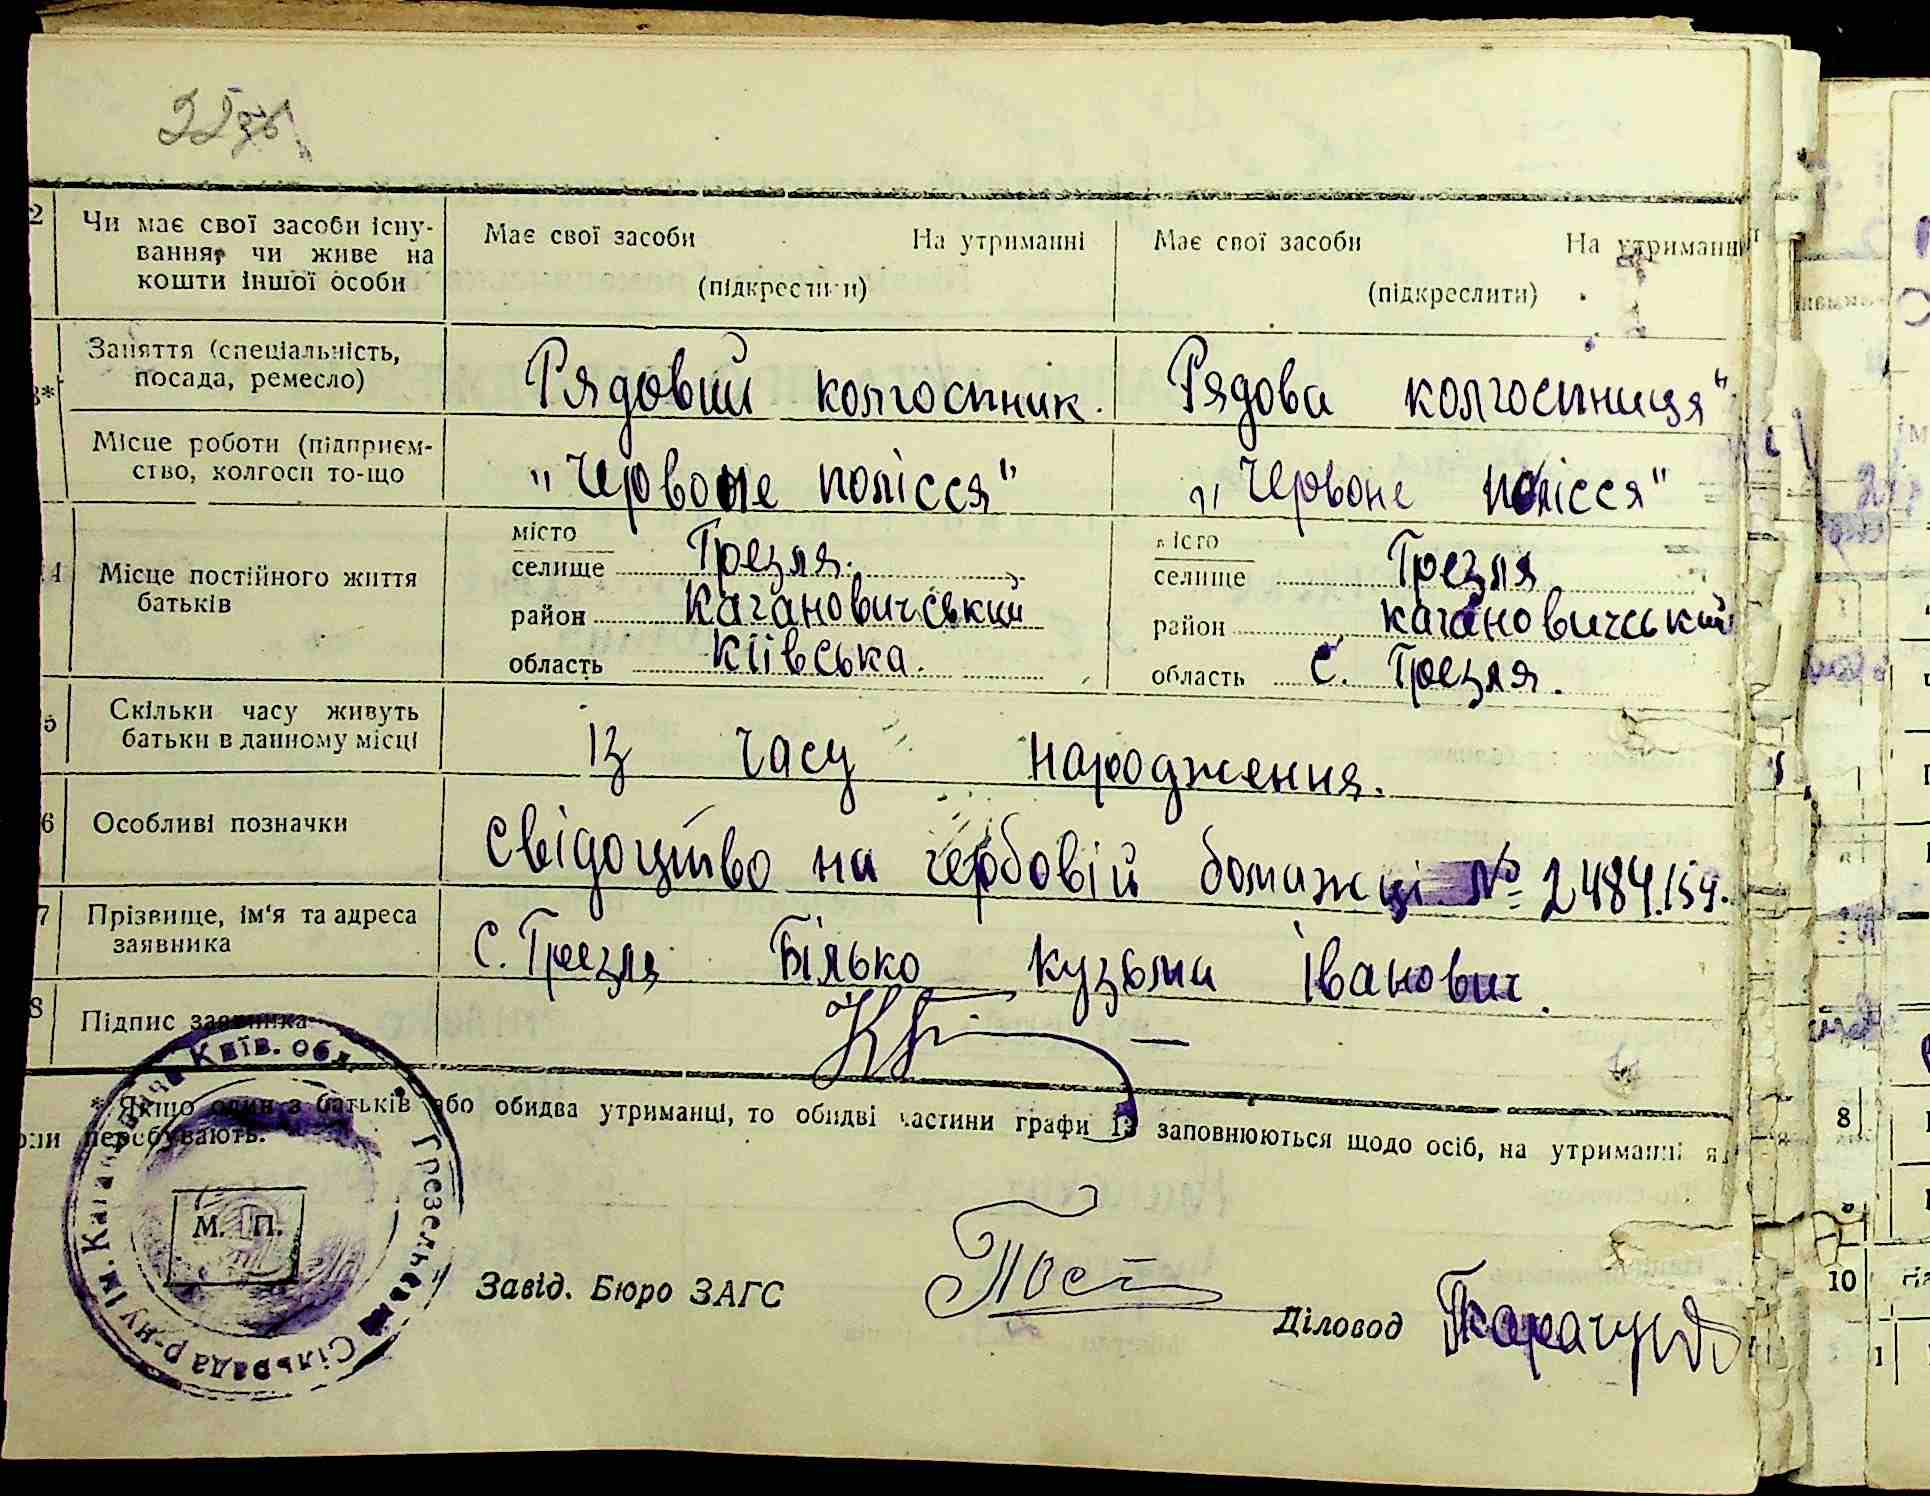 2
Чи має свої засоби існу-
вання, чи живе на
кошти іншої особи
Має свої засоби На утриманні
(підкреслити)
Має свої засоби На утриманні
(підкреслити)
3*
Заняття (спеціальність,
посада, ремесло)
Рядовий колгоспник.
Рядова колгоспниця"
Місце роботи (підприєм-
ство, колгосп то-що
"Червоне полісся"
"Червоне полісся"
4
Місце постійного життя
батьків
місто
селище Грезля.
район Кагановичський
область Київська.
місто
селище Грезля
район Кагановичський
область С. Грезля.
5
Скільки часу живуть
батьки в данному місці
Із часу народження.
6
Особливі позначки
Свідоцтво на гербовій бомажці № 2484154.
7
Прізвище, ім'я та адреса
заявника
С. Грезля Білько Кузьма Іванович.
8
Підпис заявника
* Якщо один з батьків або обидва утриманці, то обидві частини графи 13 заповнюються щодо осіб, на утриманні я
они перебувають.
М. П.
Київ. обл. Грезельська Сільрада р-ну ім. Кагановича
Завід. Бюро ЗАГС
Діловод
8
10